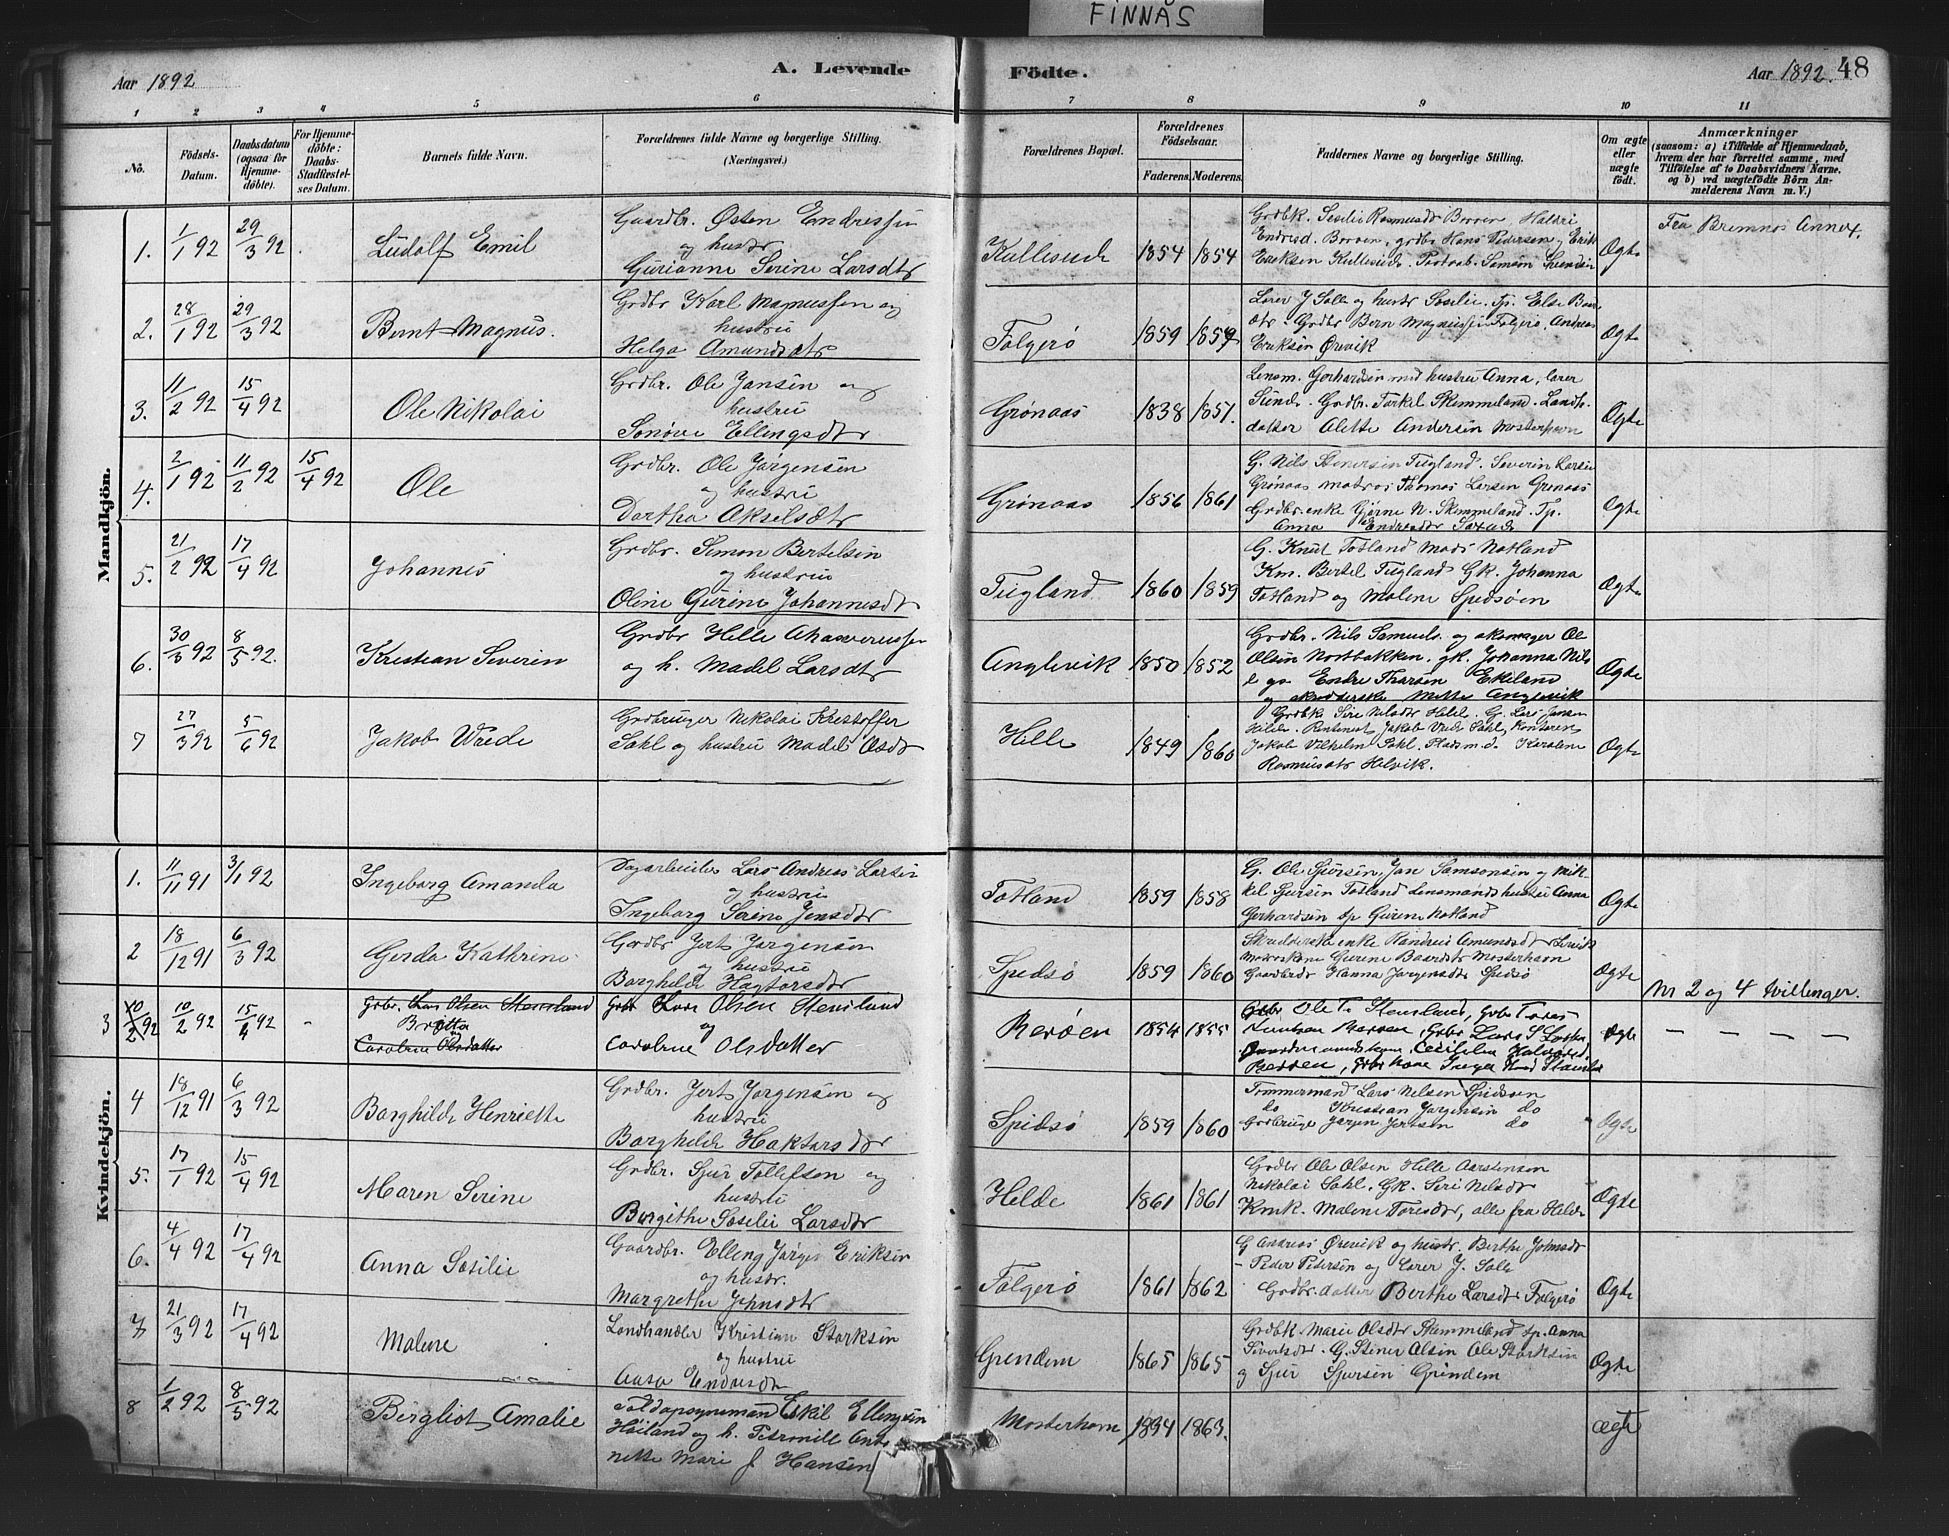 FINNÅS
Aar 1892
A. Levende
Födte.
Aar 1892.
48
1 2 3 4 5 6 7 8 9 10 11
No.
Födsels-Datum.
Daabsdatum (ogsaa for Hjemme-döbte).
For Hjemme-döbte: Daabs-Stadfæstel-ses Datum.
Barnets fulde Navn.
Forældrenes fulde Navne og borgerlige Stilling. (Næringsvei.)
Forældrenes Bopæl.
Forældrenes Födselsaar.
Faderens. Moderens.
Faddernes Navne og borgerlige Stilling.
Om ægte eller uægte födt.
Anmærkninger
(saasom: a) i Tilfælde af Hjemmedaab, hvem der har forrettet samme, med Tilföielse af to Daabsvidners Navne. og b) ved uægtefödte Börn An-melderens Navn m. V.)
Mandkjön.
1. 1/1 92 29/3 92 Ludolf Emil
Gaardbr. Østen Endressen
og hustr
Gurianne Serine Larsdtr
Kallesude 1854 1854
Endresd. Borøen, grdbr Hans Pedersen, Erik
Eriksen Kullesude.
Ægte
Fra Bremnes Annex.
2. 28/1 92 29/3 92 Bernt Magnus.
Grdbr Karl Magnussen og
hustru
Helga Amundsdtr
Folgerø 1859 1859
Lærer J Solle og hustr Sæselie. Tp. Else Baar
dtr. Grdbr Bern Magnussen Folgerø, Andreas
Eriksen Ørevik
Ægte
3. 11/2 92 15/4 92 Ole Nikolai
Grdbr. Ole Jansen og
hustru
Sønøve Ellingsdtr
Grønaas 1838 1851.
Lensm. Gerhardsen med hustru Anna, lærer
Sunde. Grdbr. Torkel Skimmeland. Landh.
datter Alette Andersen Mosterhavn
Ægte
4. 2/1 92 11/2 92 15/4 92 Ole
Grdbr. Ole Jørgensen
og hustru
Dortha Akselsdtr
Grønaas 1856 1861
G. Nils Stenersen Tugland. Severin Larsen
Grønaas matros Thomas Larsen Grønaas
Grdbr.enke Gjørine N. Skimmeland. Tp.
Anna Endresdtr
Ægte
5. 21/2 92 17/4 92 Johannes
Grdbr. Simon Bertelsen
og hustru
Oline Gurine Johannesdtr
Tugland 1860 1859
G. Knut Totland Mads Notland
Km. Bertel Tugland Gk. Johanna
Totland og Malene Spidsøen
Ægte
6. 30/3 92 8/5 92. Kristian Severin
Grdbr Helle Ahasverussen
og h. Madel Larsdtr
Anglevik 1850 1852
Grdbr. Nils Samuels. og skomager Ol
Olsen Nordbakken, gk. Johanna Nils
Endre Thorsen Ekeland
og Mette Anglevik
Ægte
7 27/3 92 5/6 92 Jakob Wrede
Grdbruger Nikolai Kristoffer
Sahl og hustru Madel Osdtr
Hille 1849 1860
Grdbk Siri Nilsdtr Helde. G. Lars Jansen
Jakob Vilhelm Sahl. Pladsm.d. Karoline
Rasmusdtr Helvik.
Ægte
Kvindekjön.
1. 11/11 91 3/1 92 Ingeborg Amanda
Dagarbeider Lars Andreas Larsen
og hustru
Ingeborg Serine Jensdtr
Totland 1859 1858
G. Ole Sjursen, Jan Samsonsen og Mik-
kel Sjursen Totland lensmands hustru Anna
Gerhardsen Tp Gurine Notland
Ægte
2 18/12 91 6/3 92 Gerda Kathrine
Grdbr Jert Jørgensen
og hustru
Borghilde Hagtorsdtr
Spidsø 1859 1860
Skrædderske enke Randveie Amundsdtr Lervik
Gurine Baardsdtr Mosterhavn
Gaardbrdr Hanna Jørgensdtr Spidsø
Ægte
Nr 2 og 4 tvillinger.
3 10/2 92 10/2 92 15/4 92 -
Grbr. Lars Olsen Stensland
Britta
Caroline Olsdatter
Grbr Lars Olsen Stensland
og
Caroline Olsdatter
Rerøen 1854 1855
Grbr Ole T. Stensland, Grbr Tores
Knutsen Rerøen, Grbr Lars S
Cecilia Halvorsd.
Rerøen, Grbrkone Inger
Ægte
— — — —
4 18/12 91 6/3 92 Borghilde Henriette
Grdbr. Jert Jørgensen og
hustru
Borghilde Haktorsdtr
Spidsø 1859 1860
Tømmermand Lars Nilsen Spidsøen
do Kristian Jørgensen do
Grdbruge Jørgen Jertsen do
Ægte
5. 17/1 92 15/4 92 Maren Serine
Grdbr. Sjur Tollefsen og
hustru
Borgithe Sæselie Larsdtr
Helde 1861 1861
Grdbr Ole Olsen Hille Aarstenson
Nikolai Sahl. Gk. Siri Nilsdtr
Kmk. Malene Toresdtr, alle fra Hilde
Ægte
6. 4/4 92 17/4 92 Anna Sæsilie
Gaardbr. Elling Jørgen Eriksen
og hustr.
Margrethe Johnsdtr
Folgerø 1861 1862
G Andreas Ørevik og hustr. Berthe Johnsdtr
- Peder Pedersen og Lærer J. Solle
Grdbr. datter Berthe Larsdtr Folgerø
Ægte
7 21/3 92 17/4 92 Malene
Landhandler Kristian Storksen
og hustru
Aasa Endresdtr
Grendem 1865 1865
Grdbk Marie Olsdtr Skimmeland Tp. Anna
Siversdtr. G. Stener Olsen Ole Storksen
og Sjur Sjursen Grindem
Ægte
8 1/2 92 8/5 92 Bergliot Amalie
Toldopsynsmand Eskil Ellingsen
Høiland og h. Petronille Ant
nette Mari J Hansen
Mosterhavn 1834 1863.
ægte